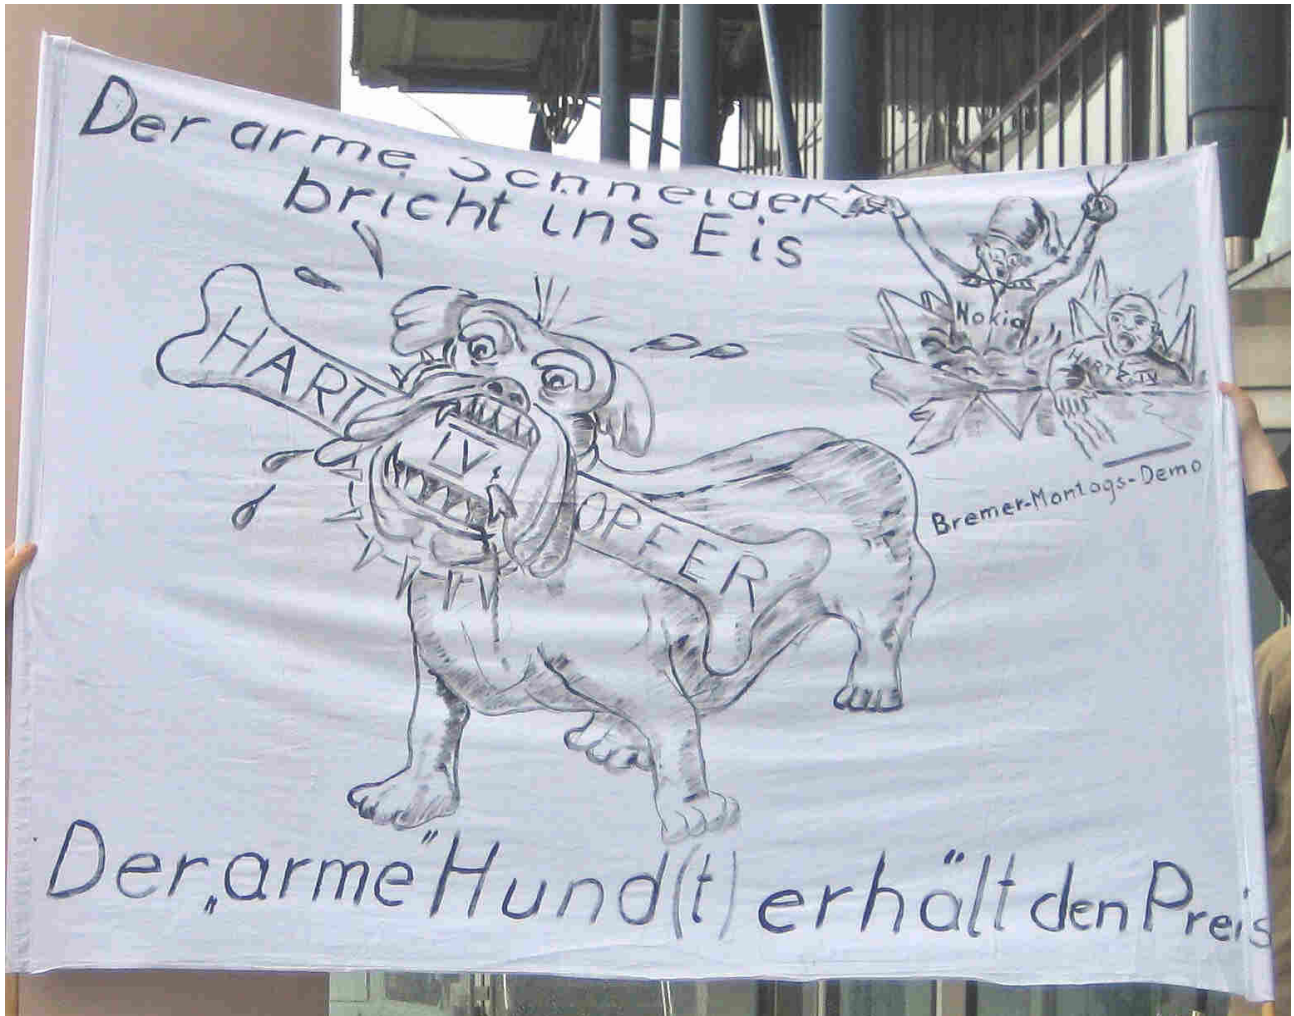 Der arme Schneider
bricht ins Eis
Nokia
HARTZ IV
HARTZ
IV
OPFER
Bremer-Montags-Demo
Der „arme" Hund(t) erhält den Preis